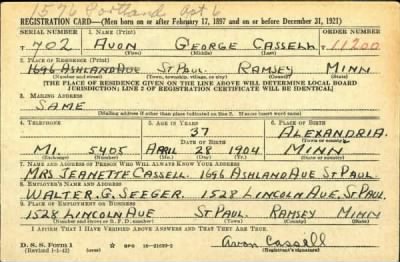 1576 Portland Apt 6
REGISTRATION CARD—(Men born on or after February 17, 1897 and on or before December 31, 1921)
SERIAL NUMBER 1. NAME (Print) ORDER NUMBER
T 702 AVON GEORGE CASSELL 11200
(First) (Middle) (Last)
2. PLACE OF RESIDENCE (Print)
1696 ASHLAND AVE ST PAUL RAMSEY MINN
(Number and street) (Town, township, village, or city) (County) (State)
[THE PLACE OF RESIDENCE GIVEN ON THE LINE ABOVE WILL DETERMINE LOCAL BOARD
JURISDICTION; LINE 2 OF REGISTRATION CERTIFICATE WILL BE IDENTICAL]
3. MAILING ADDRESS
SAME
[Mailing address if other than place indicated on line 2. If same insert word same]
4. TELEPHONE 5. AGE IN YEARS 6. PLACE OF BIRTH
37 ALEXANDRIA
DATE OF BIRTH (Town or county)
MI. 5405 APRIL 28 1904 MINN
(Exchange) (Number) (Mo.) (Day) (Yr.) (State or country)
7. NAME AND ADDRESS OF PERSON WHO WILL ALWAYS KNOW YOUR ADDRESS
MRS JEANETTE CASSELL 1696 ASHLAND AVE ST PAUL
8. EMPLOYER'S NAME AND ADDRESS
WALTER. G. SEEGER. 1528 LINCOLN AVE. ST. PAUL.
9. PLACE OF EMPLOYMENT OR BUSINESS
1528 LINCOLN AVE ST PAUL RAMSEY MINN
(Number and street or R. F. D. number) (Town) (County) (State)
I AFFIRM THAT I HAVE VERIFIED ABOVE ANSWERS AND THAT THEY ARE TRUE.
D. S. S. Form 1
(Revised 1-1-42) (over) GPO 16—21630-2
Avon Cassell
(Registrant's signature)